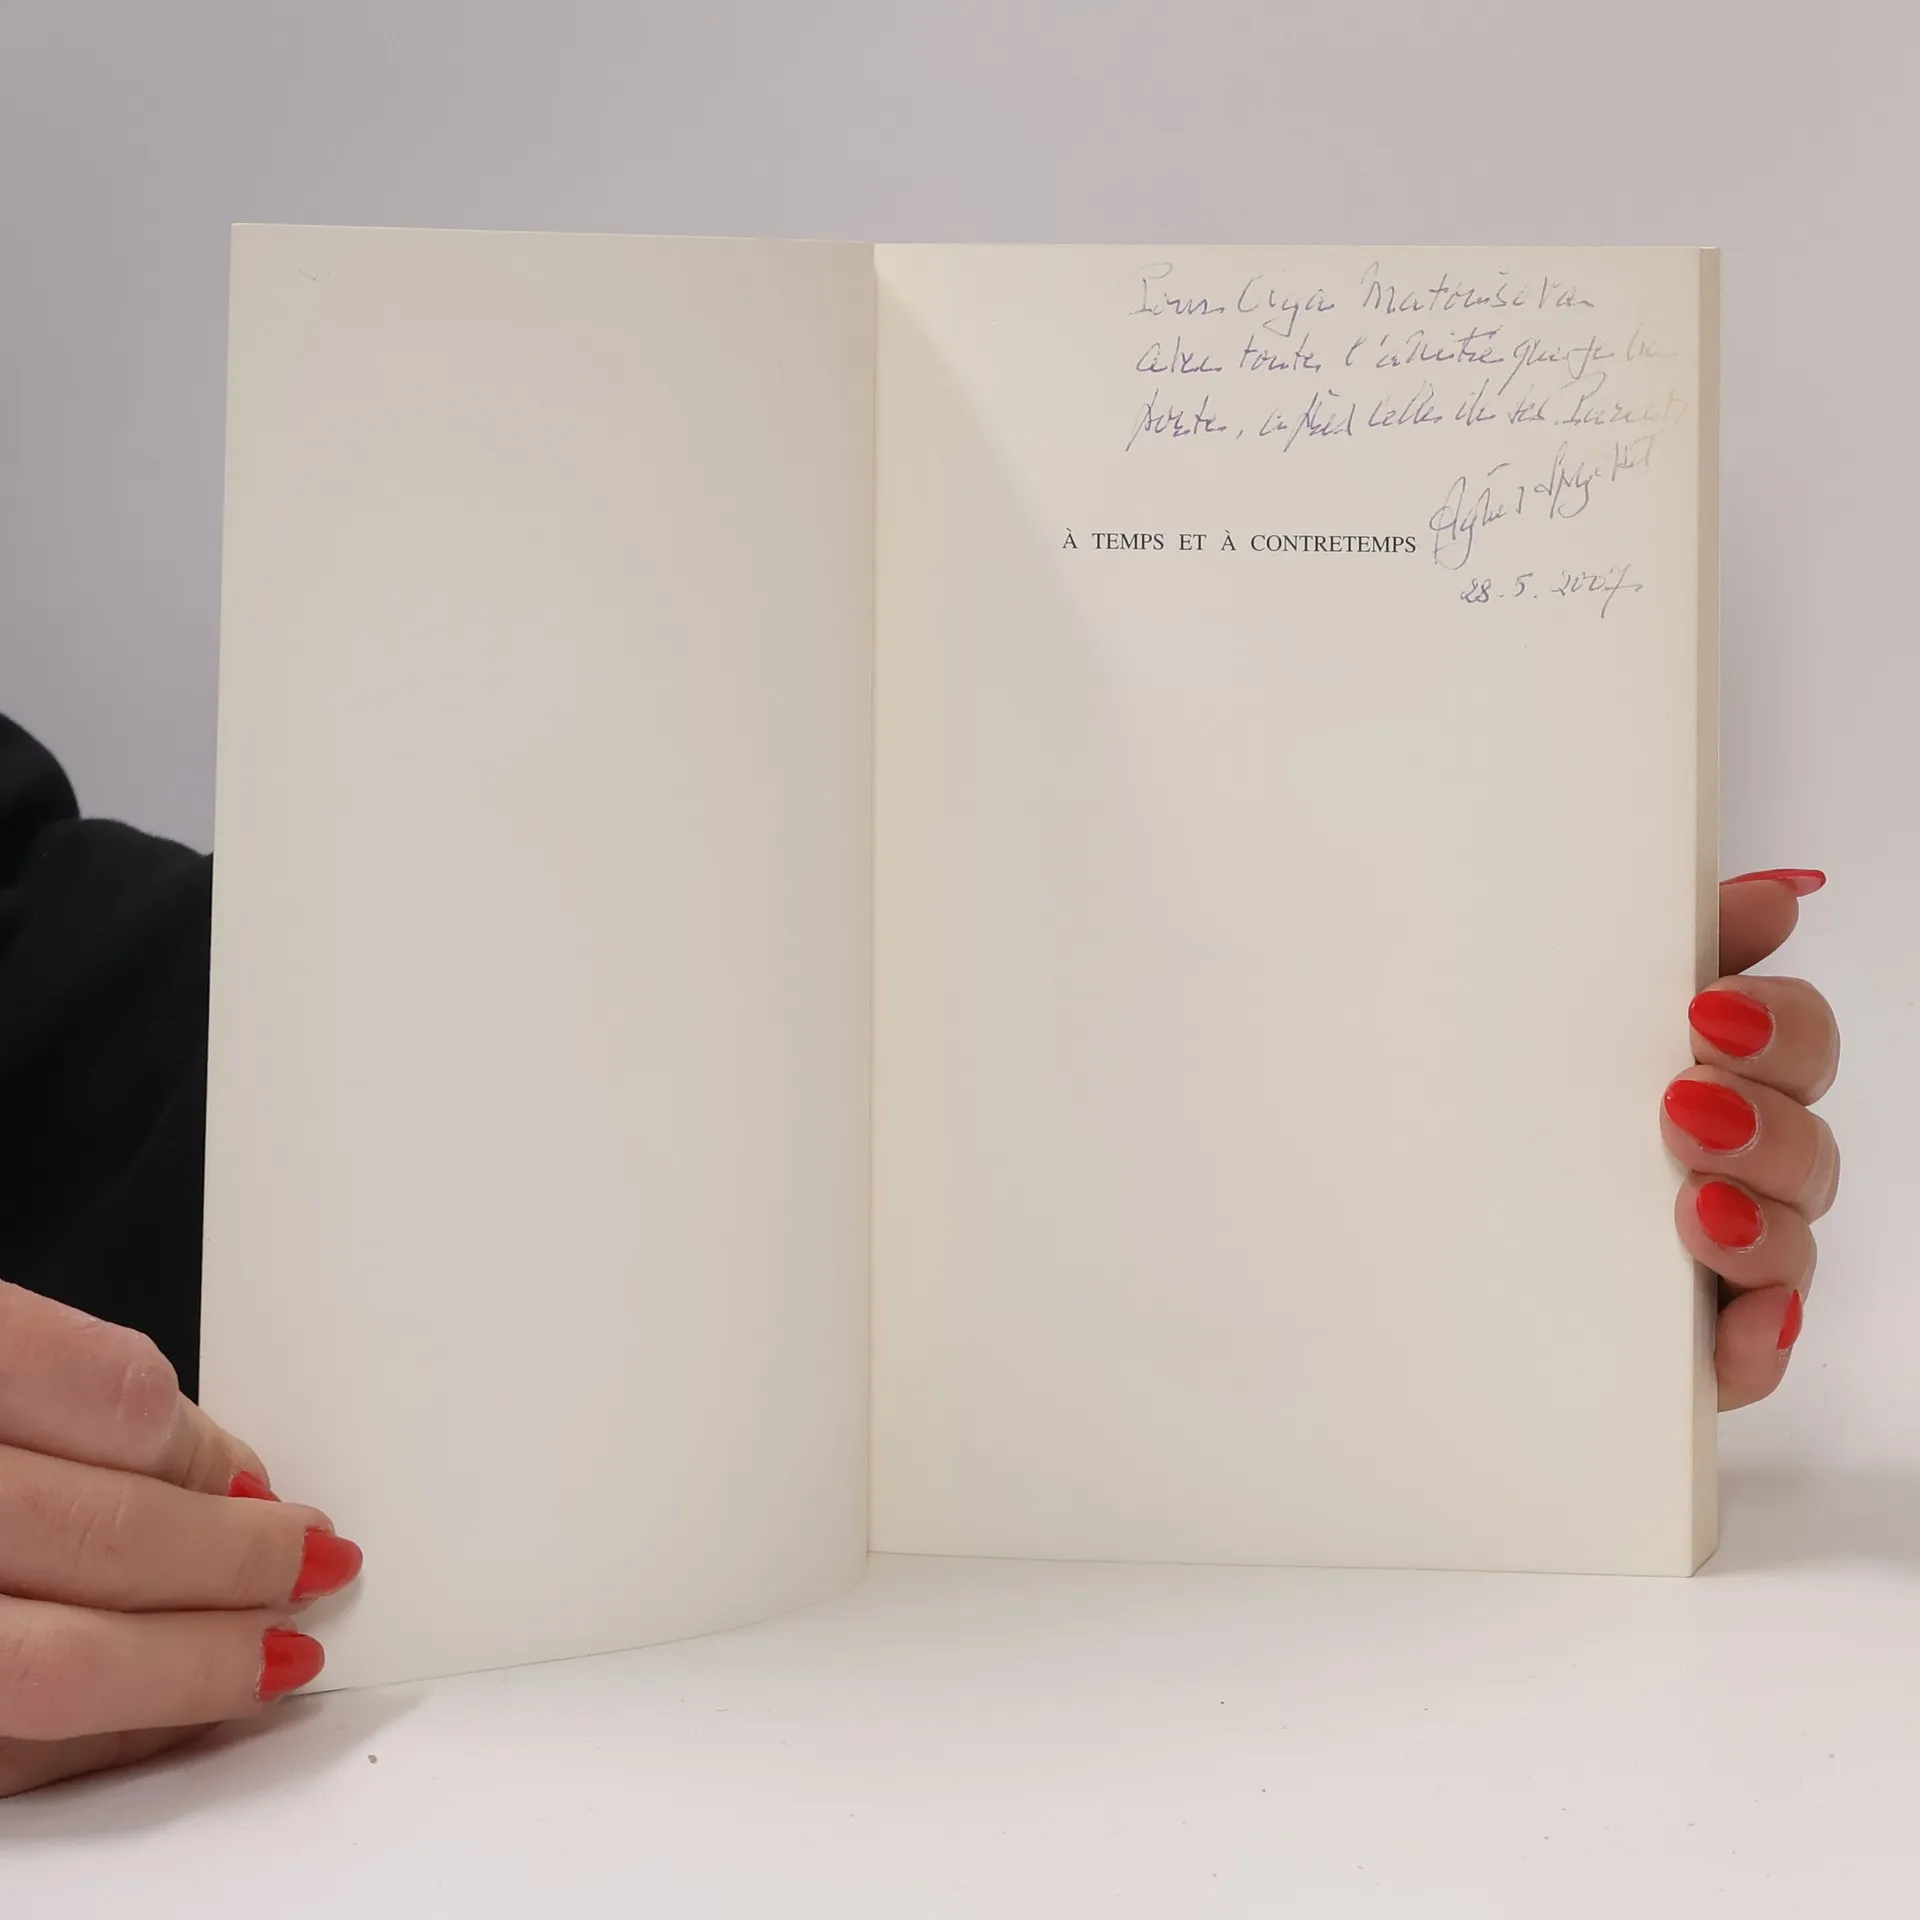 Pour Olga Matoušova
avec toute l'amitié que je lui
porte, après celle de ses Parents
Agnès
À TEMPS ET À CONTRETEMPS
28.5.2007